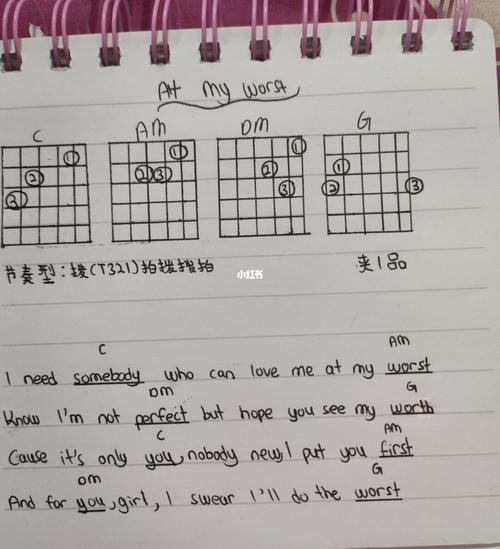 At my worst
C AM DM G
① ①  ① 
② ②③ ② ①
③ ③ ② ③
节奏型：拨(T321)拍拨拨拍 夹1品
小红书
C Am
I need somebody who can love me at my worst
Dm G
Know I'm not perfect but hope you see my worth
C Am
Cause it's only you, nobody new, I put you first
Dm G
And for you, girl, I swear I'll do the worst